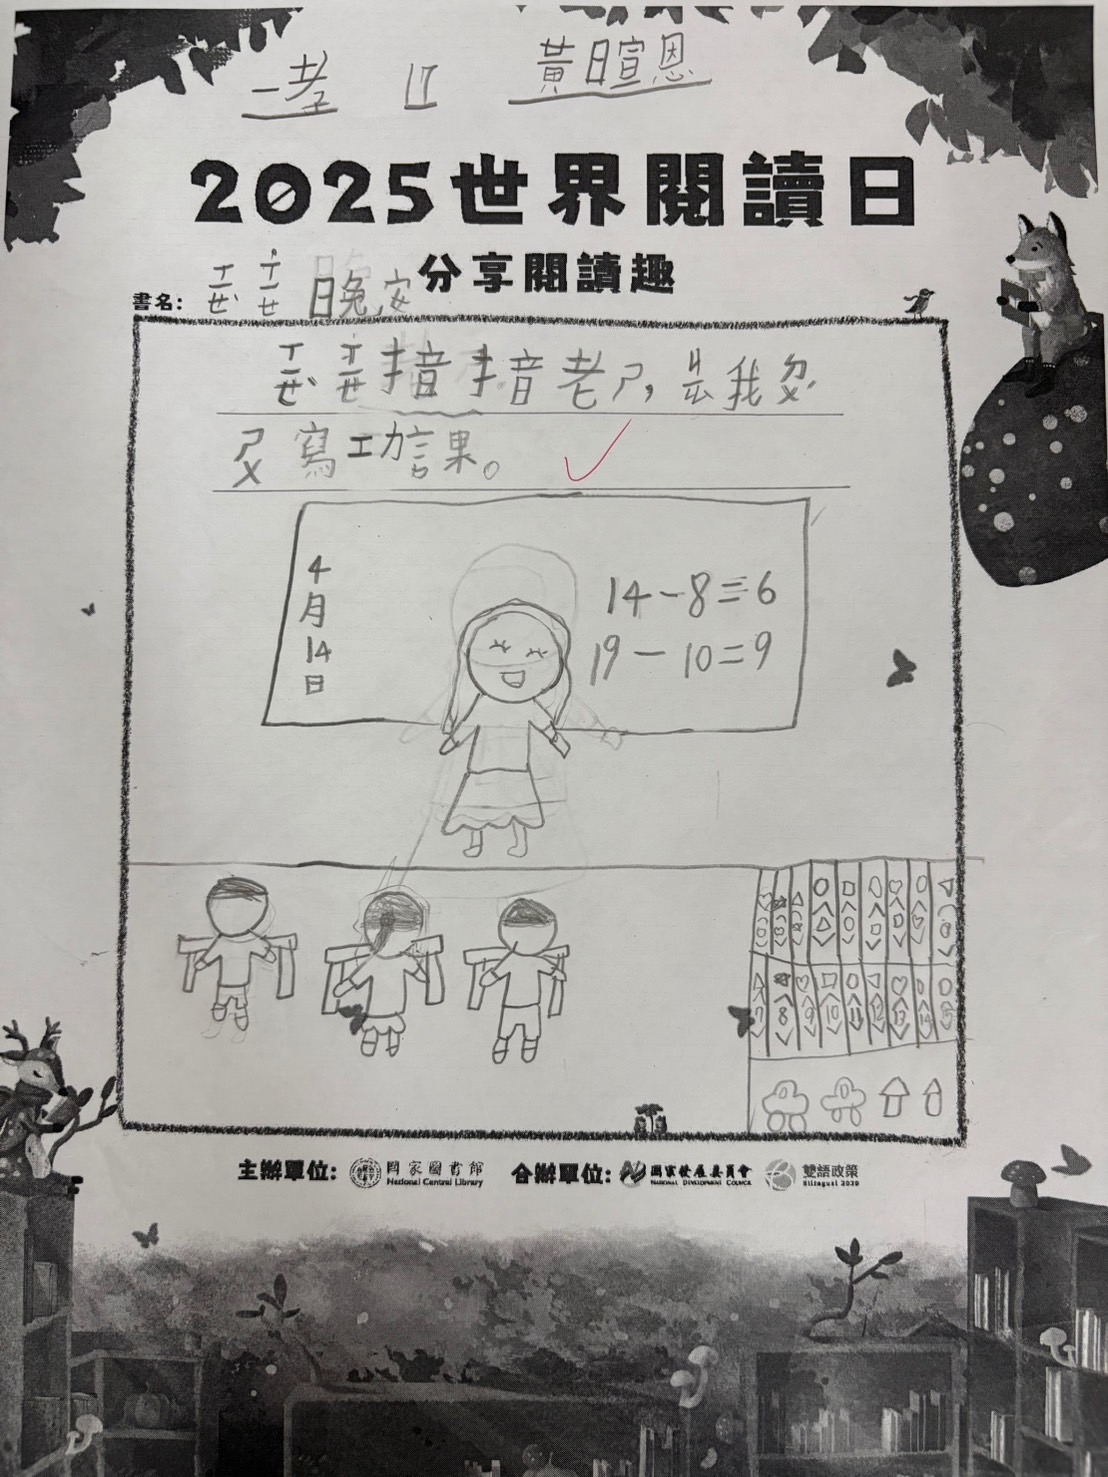 一孝 17 黃日宣恩
2025世界閱讀日
分享閱讀趣
書名: ㄒㄧㄝˋ ㄒㄧㄝ 晚安
ㄒㄧㄝˋ ㄒㄧㄝ 老ㄕ, ㄐㄧㄠ 我
寫功課。
4月14日
14-8=6
19-10=9
7 8 9 10 11 12 13 14 15
主辦單位: 國家圖書館 National Central Library 合辦單位: 國家發展委員會 NATIONAL DEVELOPMENT COUNCIL 雙語政策 Bilingual 2030